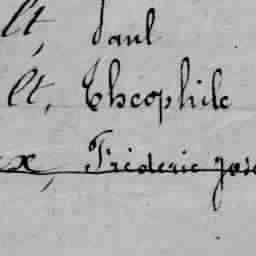 lt, Paul
lt, Théophile
x, Fréderic Jose